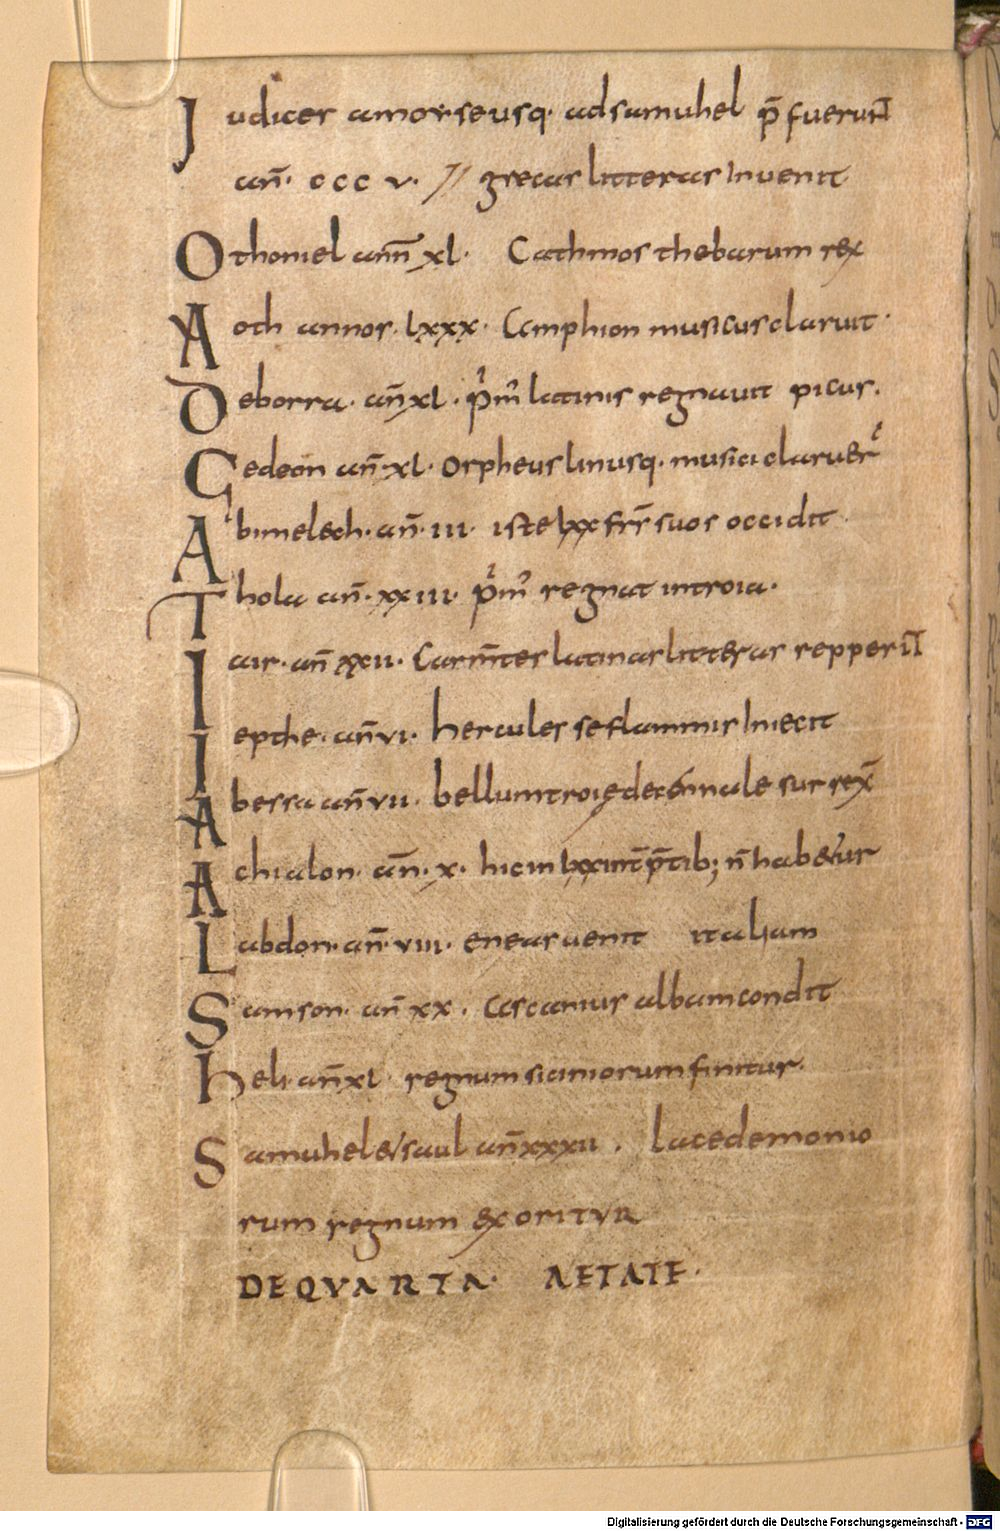 Iudices a moyse usq· ad samuhel p̄ fuerunt
an̄· ccc v· // grecas litteras Invenit
Othoniel ann̄ xl· Cathmos thebarum rex
Aoth annos· lxxx· Camphion musicus claruit·
Deborra· an̄ xl· p̍m᷒ latinis regnauit picus·
Gedeon an̄· xl· orpheus linusq· musici claruer̄
Abimelech· an̄· III· iste lxx fr̄s suos occidit
Thola an̄· xxIII· p̍m᷒ regnat in troia·
Iair· an̄ xxII· Carm̄tes latinas litteras repperit
Iepthe· an̄ vI· hercules se flammis Iniecit
Abessa an̄ vII· bellum troię decennale surrex̄
Achialon· an̄· x· hic in lxx int̄p̄tib; n̄ habetur
Labdon· an̄· vIII· eneas uenit italiam
Samson· an̄ xx· ascanius albam condit
Heli· an̄ xl· regnum siciniorum finitur·
Samuhel & saul an̄ xxxII· lacedemonio
rum regnum exoritur
DE QVARTA· AETATE·
Digitalisierung gefördert durch die Deutsche Forschungsgemeinschaft - DFG